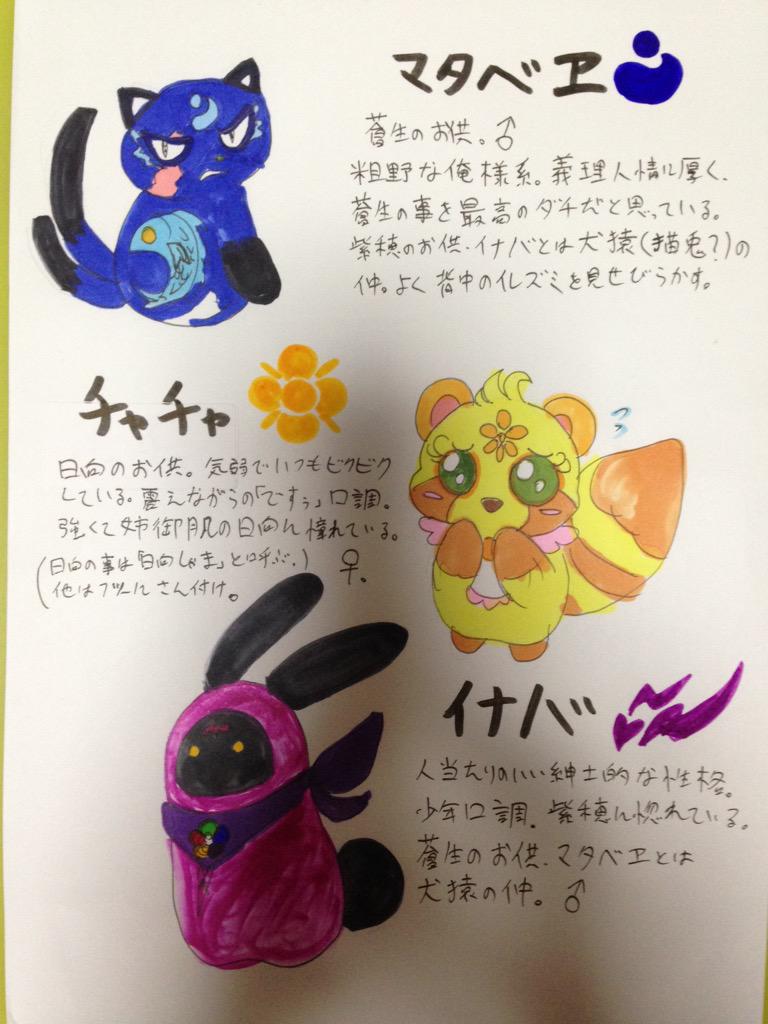 マタベヱ
蒼生のお供。♂
粗野な俺様系。義理人情に厚く、
蒼生の事を最高のダチだと思っている。
紫穂のお供・イナバとは犬猿(猫兎?)の
仲。よく背中のイレズミを見せびらかす。
チャチャ
日向のお供。気弱でいつもビクビク
している。震えながらの「ですぅ」口調。
強くて姉御肌の日向に憧れている。
(日向の事は「日向しゃま」と呼ぶ。)
他はフツーにさん付け。
♀.
イナバ
人当たりのいい紳士的な性格。
少年口調。紫穂に惚れている。
蒼生のお供・マタベヱとは
犬猿の仲。♂